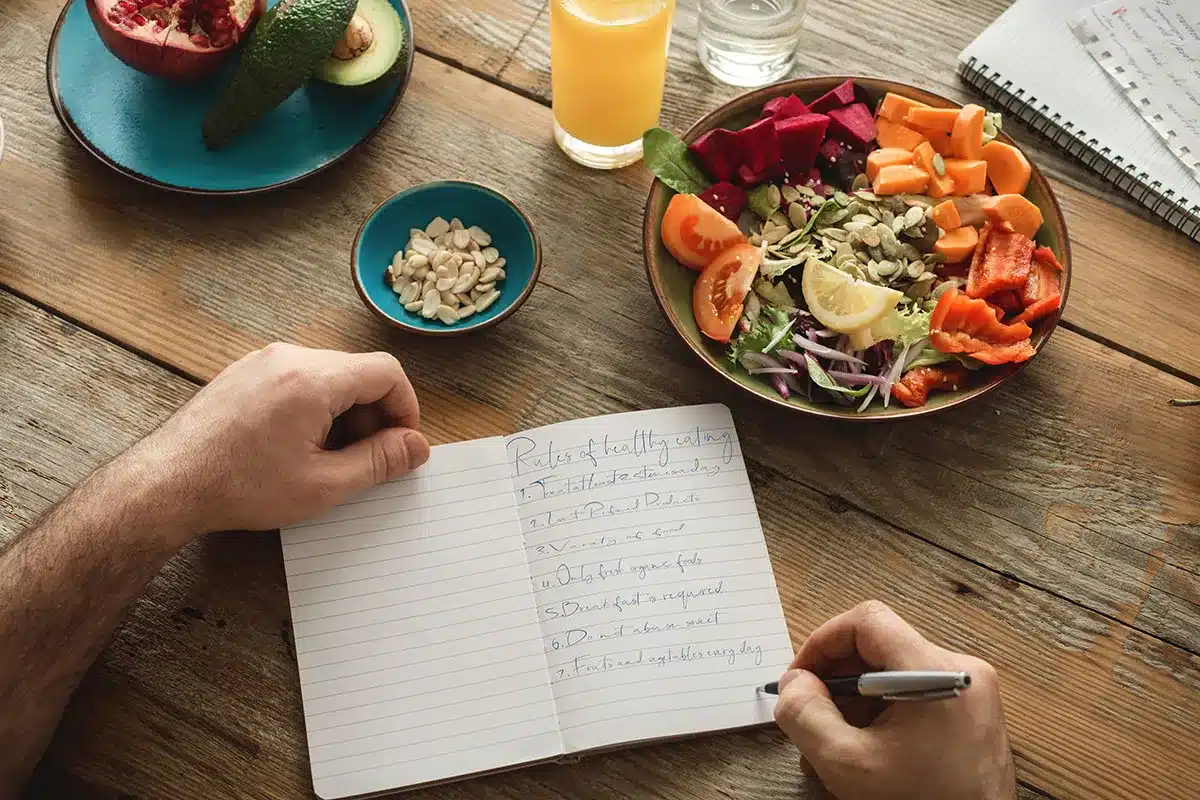 Rules of healthy eating
1. To eat at least 2 times a day
2. Limit Refined Products
3. Variety of food
4. Only fresh organic foods
5. Breakfast is required
6. Do not abuse sweet
7. Fruits and vegtables every day